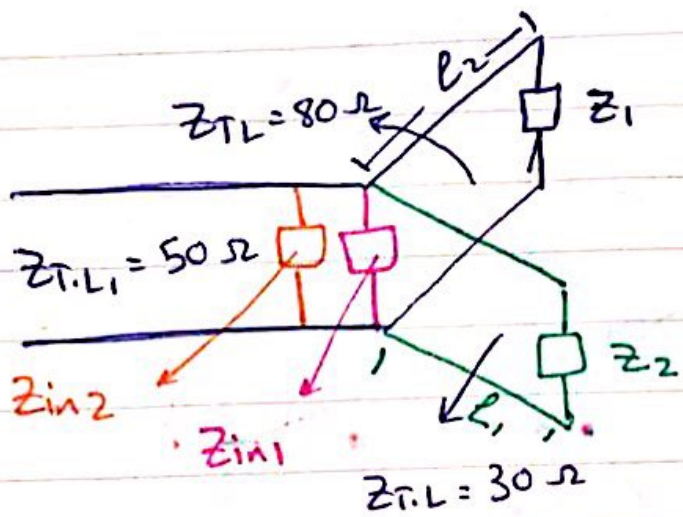 ℓ2
Z_TL = 80 Ω
Z1
Z_T.L1 = 50 Ω
Z2
Zin2
Zin1
ℓ1
Z_T.L = 30 Ω